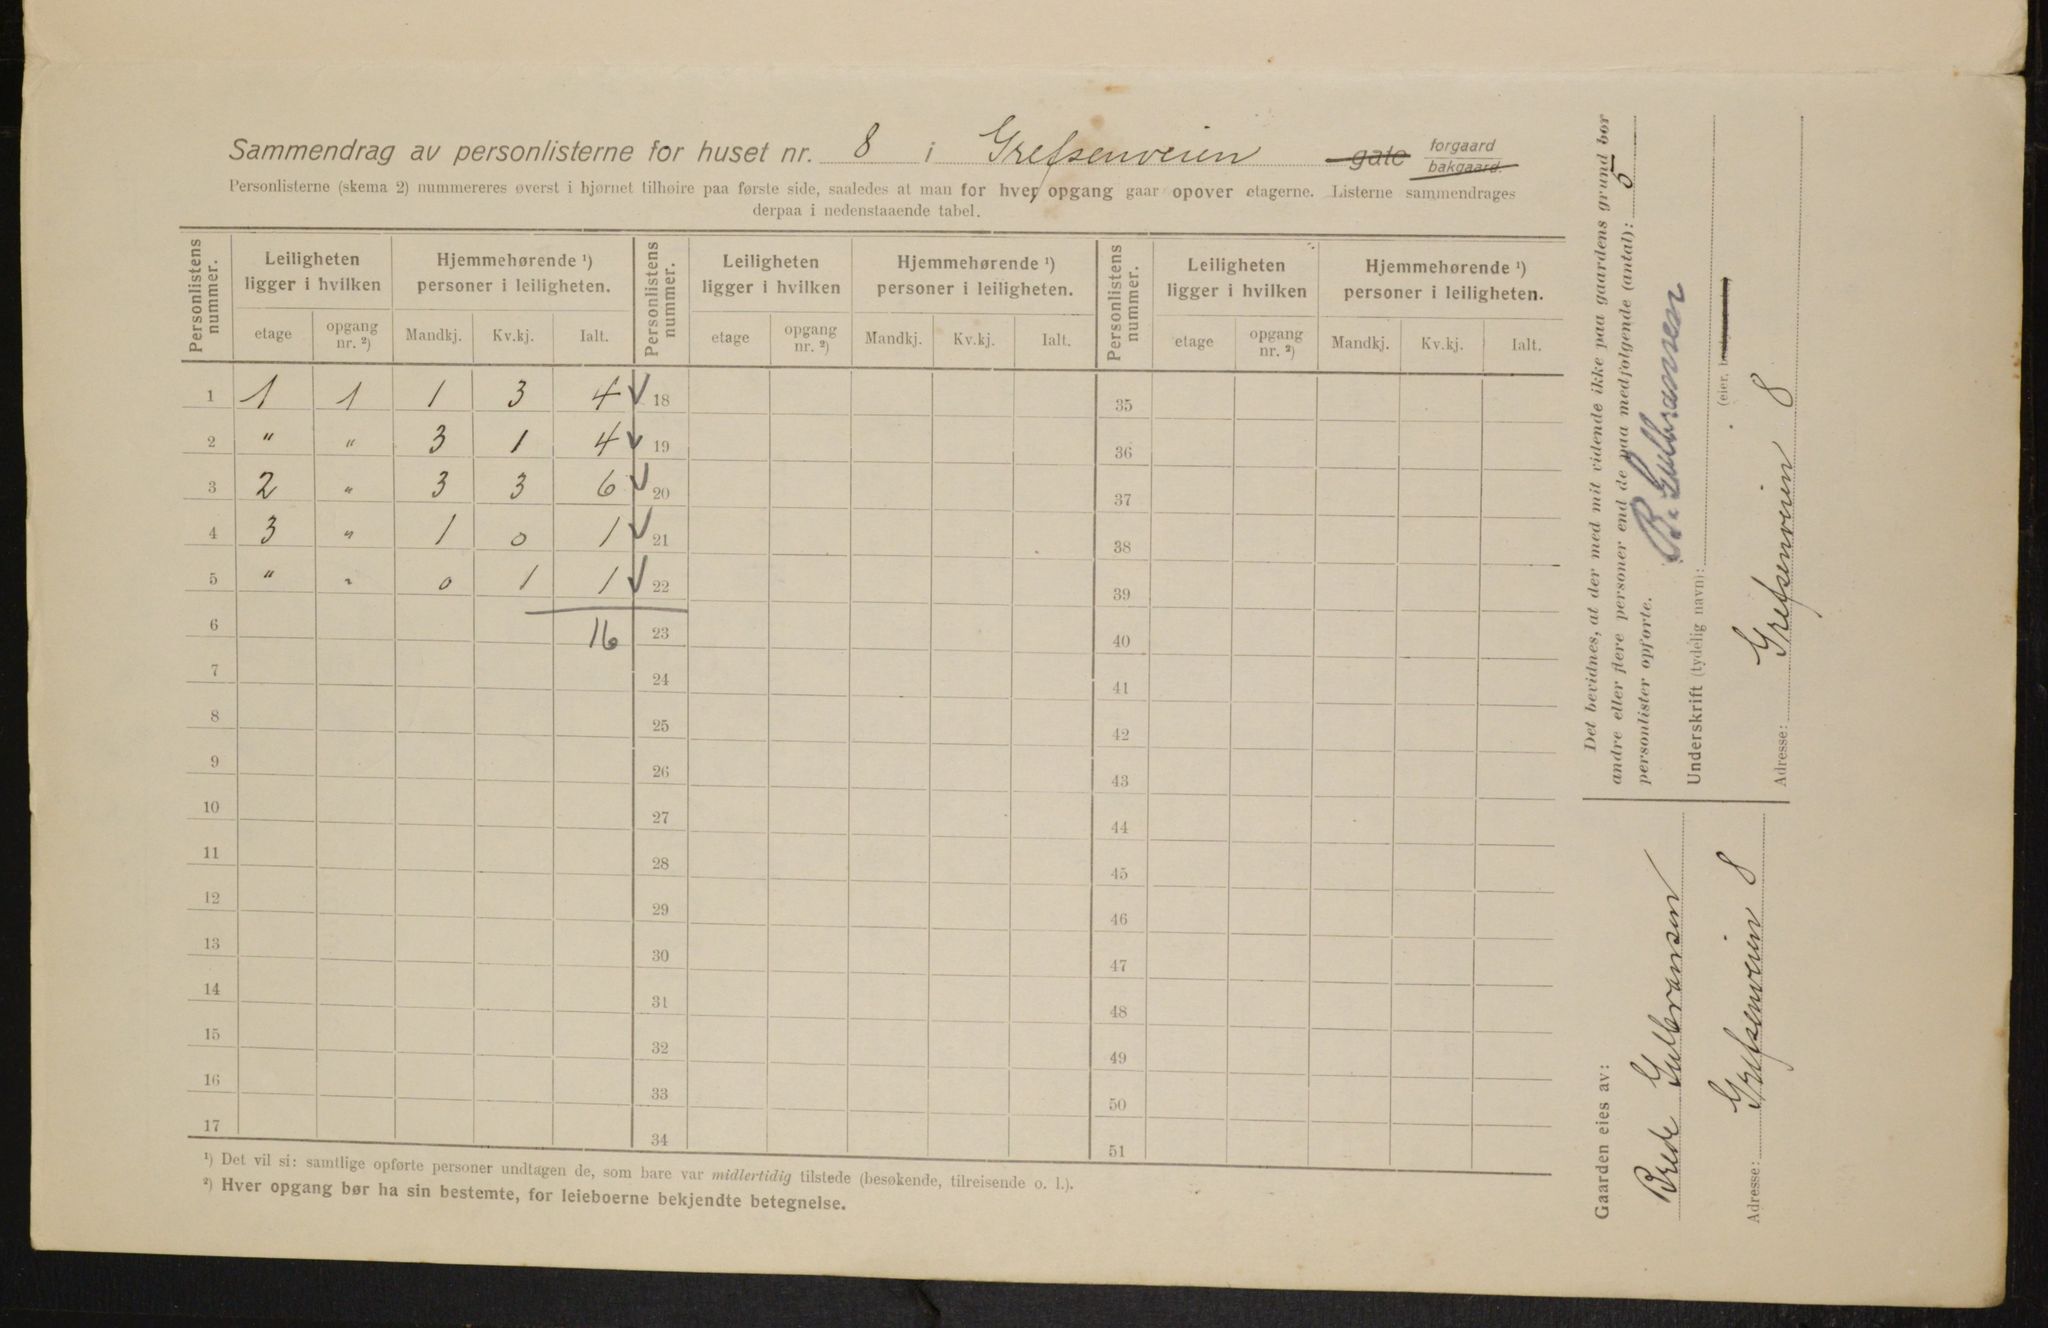 Sammendrag av personlisterne for huset nr. 8 i Grefsenveien gate forgaard bakgaard.
Personlisterne (skema 2) nummereres øverst i hjørnet tilhøire paa første side, saaledes at man for hver opgang gaar opover etagerne. Listerne sammendrages
derpaa i nedenstaaende tabel.
Personlistens nummer. Leiligheten ligger i hvilken Hjemmehørende ¹) personer i leiligheten. Personlistens nummer. Leiligheten ligger i hvilken Hjemmehørende ¹) personer i leiligheten. Personlistens nummer. Leiligheten ligger i hvilken Hjemmehørende ¹) personer i leiligheten.
etage opgang nr. ²) Mandkj. Kv.kj. Ialt. etage opgang nr. ²) Mandkj. Kv.kj. Ialt. etage opgang nr. ²) Mandkj. Kv.kj. Ialt.
1 1 1 1 3 4 18 35
2 " " 3 1 4 19 36
3 2 " 3 3 6 20 37
4 3 " 1 0 1 21 38
5 " " 0 1 1 22 39
6 16 23 40
7 24 41
8 25 42
9 26 43
10 27 44
11 28 45
12 29 46
13 30 47
14 31 48
15 32 49
16 33 50
17 34 51
¹) Det vil si: samtlige opførte personer undtagen de, som bare var midlertidig tilstede (besøkende, tilreisende o. l.).
²) Hver opgang bør ha sin bestemte, for leieboerne bekjendte betegnelse.
Det bevidnes, at der med mit vidende ikke paa gaardens grund bor
andre eller flere personer end de paa medfølgende (antal): 5
personlister opførte.
B. Gulbransen
Underskrift (tydelig navn):
(eier,
Adresse: Grefsenveien 8
Gaarden eies av:
Brede Gulbransen
Adresse: Grefsenveien 8